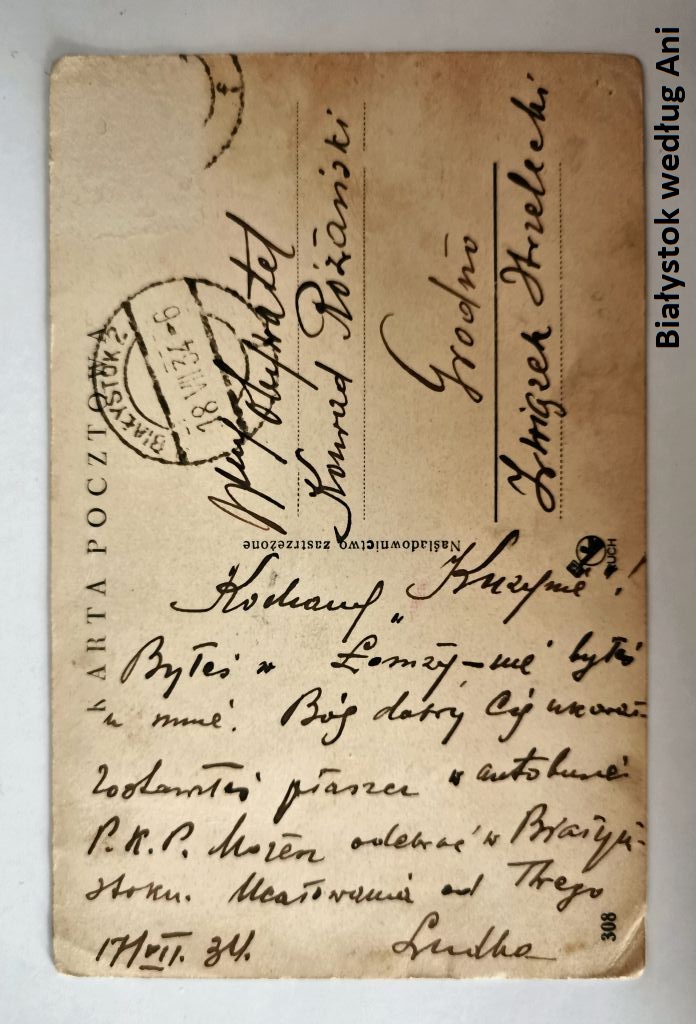 KARTA POCZTOWA
BIAŁYSTOK 2
18 VII 34-9
Obywatel
Konrad Różański
Grodno
Związek Strzelecki
Naśladownictwo zastrzeżone
RUCH
"Kochany" Kuzynie!
Byłeś w Łomży – nie byłeś
u mnie. Bóg dobry Cię ukarał.
Zostawiłeś płaszcz w autobusie
P.K.P. Możesz odebrać w Białym-
stoku. Ucałowania od Twego
17/VII. 34. Ludka
308
Białystok według Ani